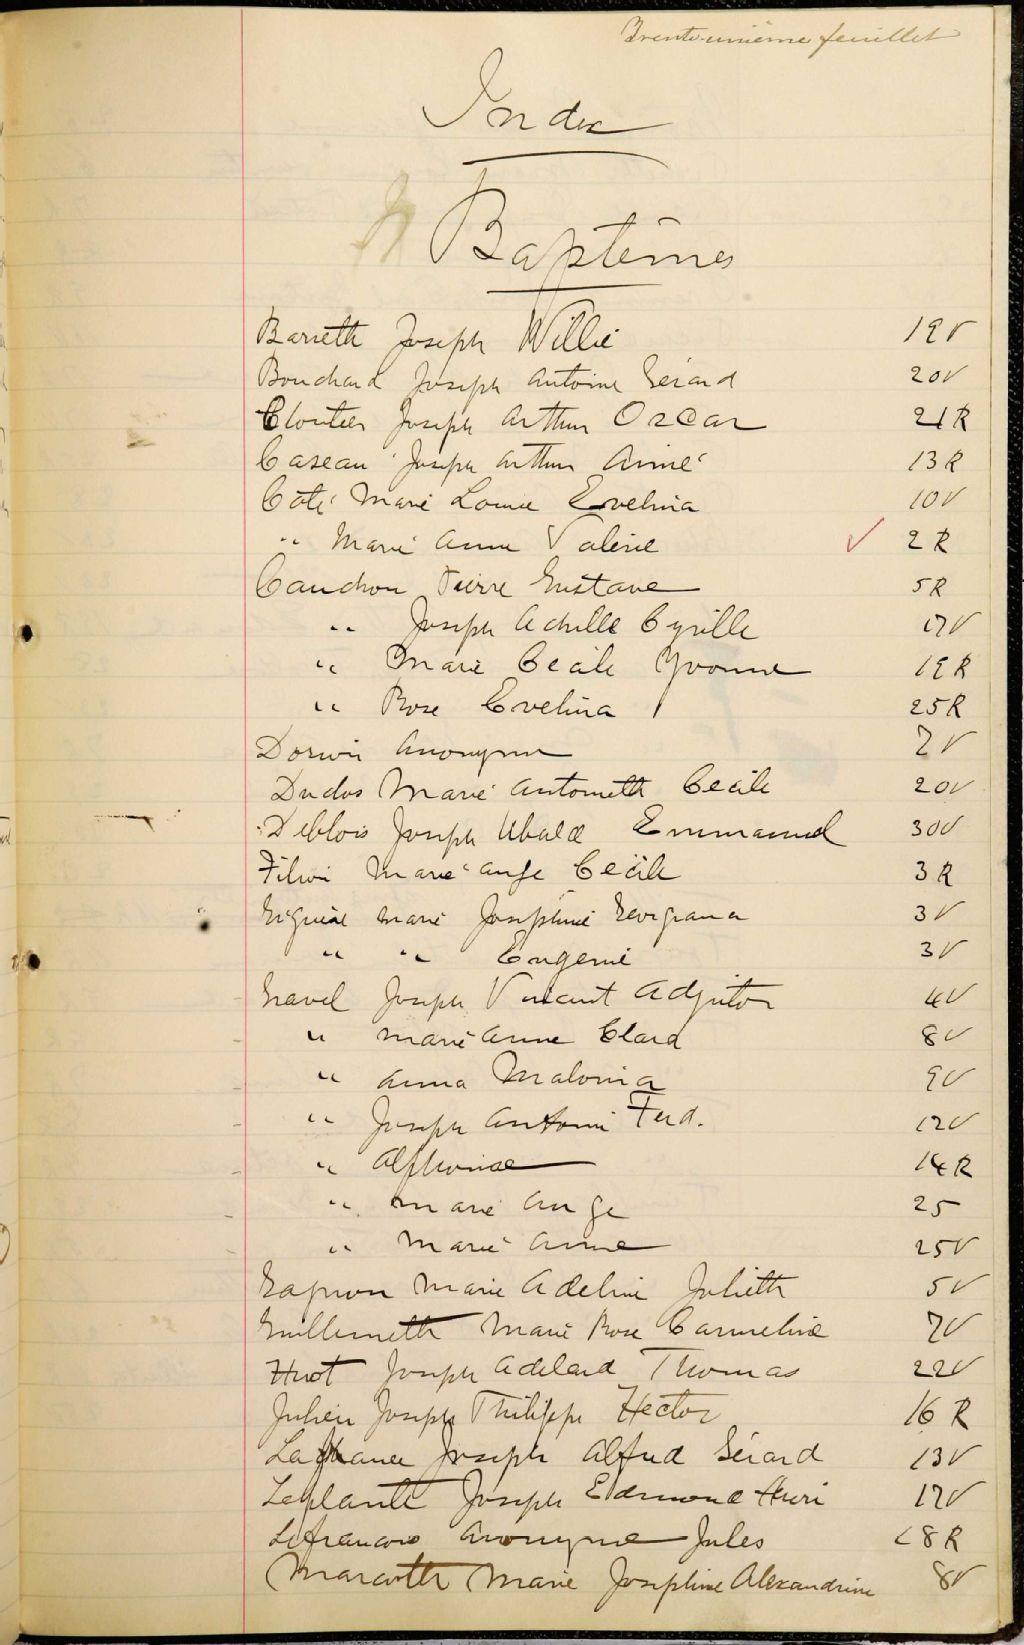 Trente-unième feuillet
Index
Baptêmes
Barreth Joseph Willie 19V
Bouchard Joseph Antoine Gérard 20V
Cloutier Joseph Arthur Oscar 21R
Caseau Joseph Arthur Aimé 13R
Coté Marie Louise Evelina 10V
" Marie Anne Valérie 2R
Cauchon Pierre Gustave 5R
" Joseph Achille Cyrille 17V
" Marie Cecile Yvonne 19R
" Rose Evelina 25R
Dorwin Anonyme 7V
Duclos Marie Antoineth Cecile 20V
Deblois Joseph Ubald Emmanuel 30V
Marie Ange Cécile 3R
Giguère Marie Josephine Georgiana 3V
" " Eugenie 3V
Gravel Joseph Vincent Adjutor 4V
" Marie Anne Clara 8V
" Anna Malvina 9V
" Joseph Antoine Ferd. 12V
" Alphonse 14R
" Marie Ange 25
" Marie Anne 25V
Gagnon Marie Adeline Julieth 5V
Guillemeth Marie Rose Carmeline 7V
Huot Joseph Adelard Thomas 22V
Julien Joseph Philippe Hector 16R
Lafrance Joseph Alfred Gérard 13V
Laplante Joseph Edmond Henri 17V
Lefrancois Anonyme Jules 28R
Marcotte Marie Josephine Alexandrine 8V